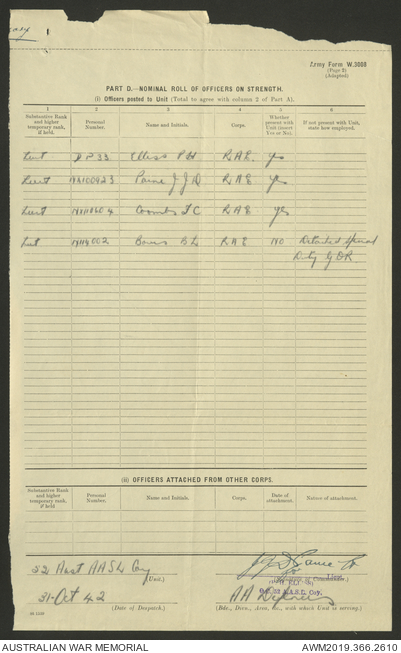 Army Form W.3008
(Page 2)
(Adapted)
PART D.—NOMINAL ROLL OF OFFICERS ON STRENGTH.
(i) Officers posted to Unit (Total to agree with column 2 of Part A).
1 2 3 4 5 6
Substantive Rank and higher temporary rank, if held. Personal Number. Name and Initials. Corps. Whether present with Unit (insert Yes or No). If not present with Unit, state how employed.
Lieut DP33 Elliss P H RAE yes
Lieut NX100423 Paine J J D RAE yes
Lieut Coombs F C RAE yes
Lieut Bowes B L RAE NO Detached Special
Duty
(ii) OFFICERS ATTACHED FROM OTHER CORPS.
Substantive Rank and higher temporary rank, if held Personal Number. Name and Initials. Corps. Date of attachment. Nature of attachment.
32 Aust AASL Coy
(Unit.)
Lieut
31-Oct 42
(Date of Despatch.)
AA Defences
(Bde., Divn., Area, etc., with which Unit is serving.)
AUSTRALIAN WAR MEMORIAL AWM2019.366.2610